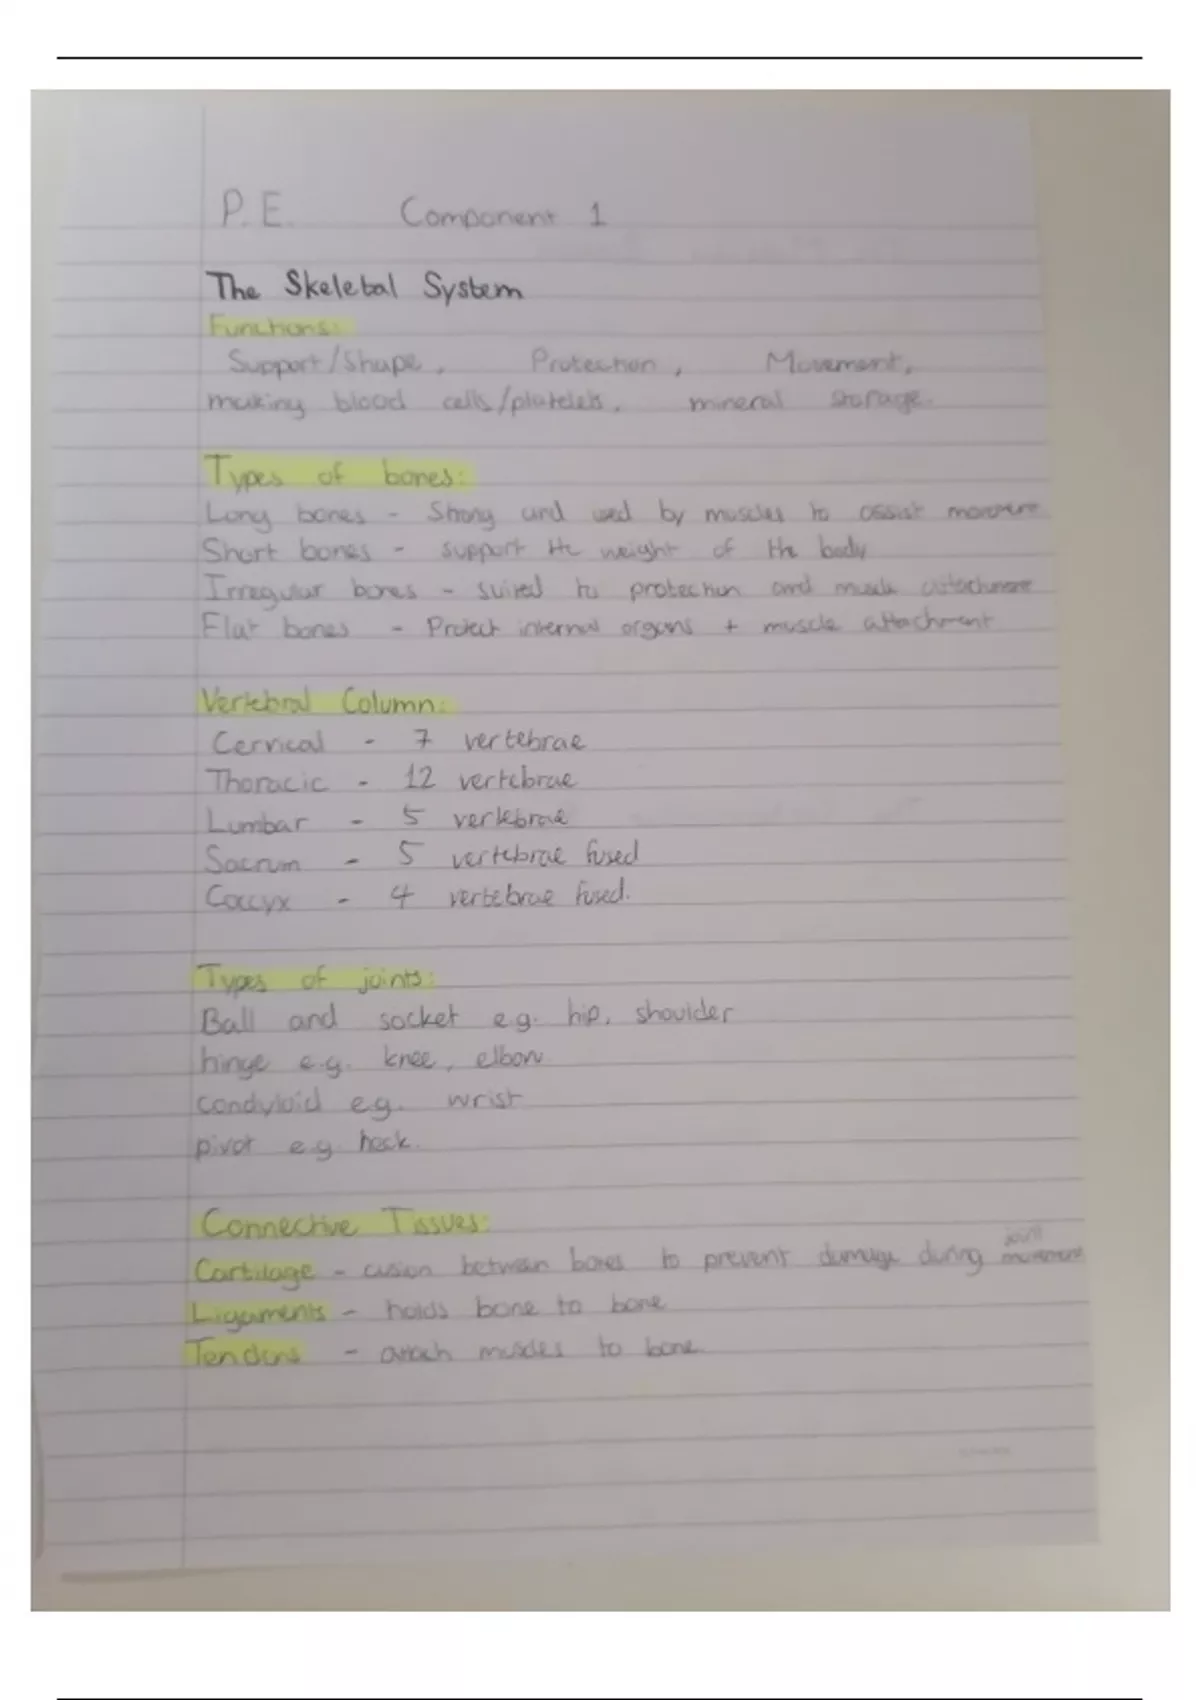 P.E. Component 1
The Skeletal System
Functions:
Support/Shape, Protection, Movement,
making blood cells/platelets, mineral storage.
Types of bones:
Long bones - Strong and used by muscles to assist movement
Short bones - support the weight of the body
Irregular bones - suited to protection and muscle attachment
Flat bones - Protect internal organs + muscle attachment
Vertebral Column:
Cervical - 7 vertebrae
Thoracic - 12 vertebrae
Lumbar - 5 vertebrae
Sacrum - 5 vertebrae fused
Coccyx - 4 vertebrae fused.
Types of joints:
Ball and socket e.g. hip, shoulder
hinge e.g. knee, elbow
condyloid e.g. wrist
pivot e.g. neck.
Connective Tissues:
Cartilage - cusion between bones to prevent damage during joint movement
Ligaments - holds bone to bone
Tendons - attach muscles to bone.